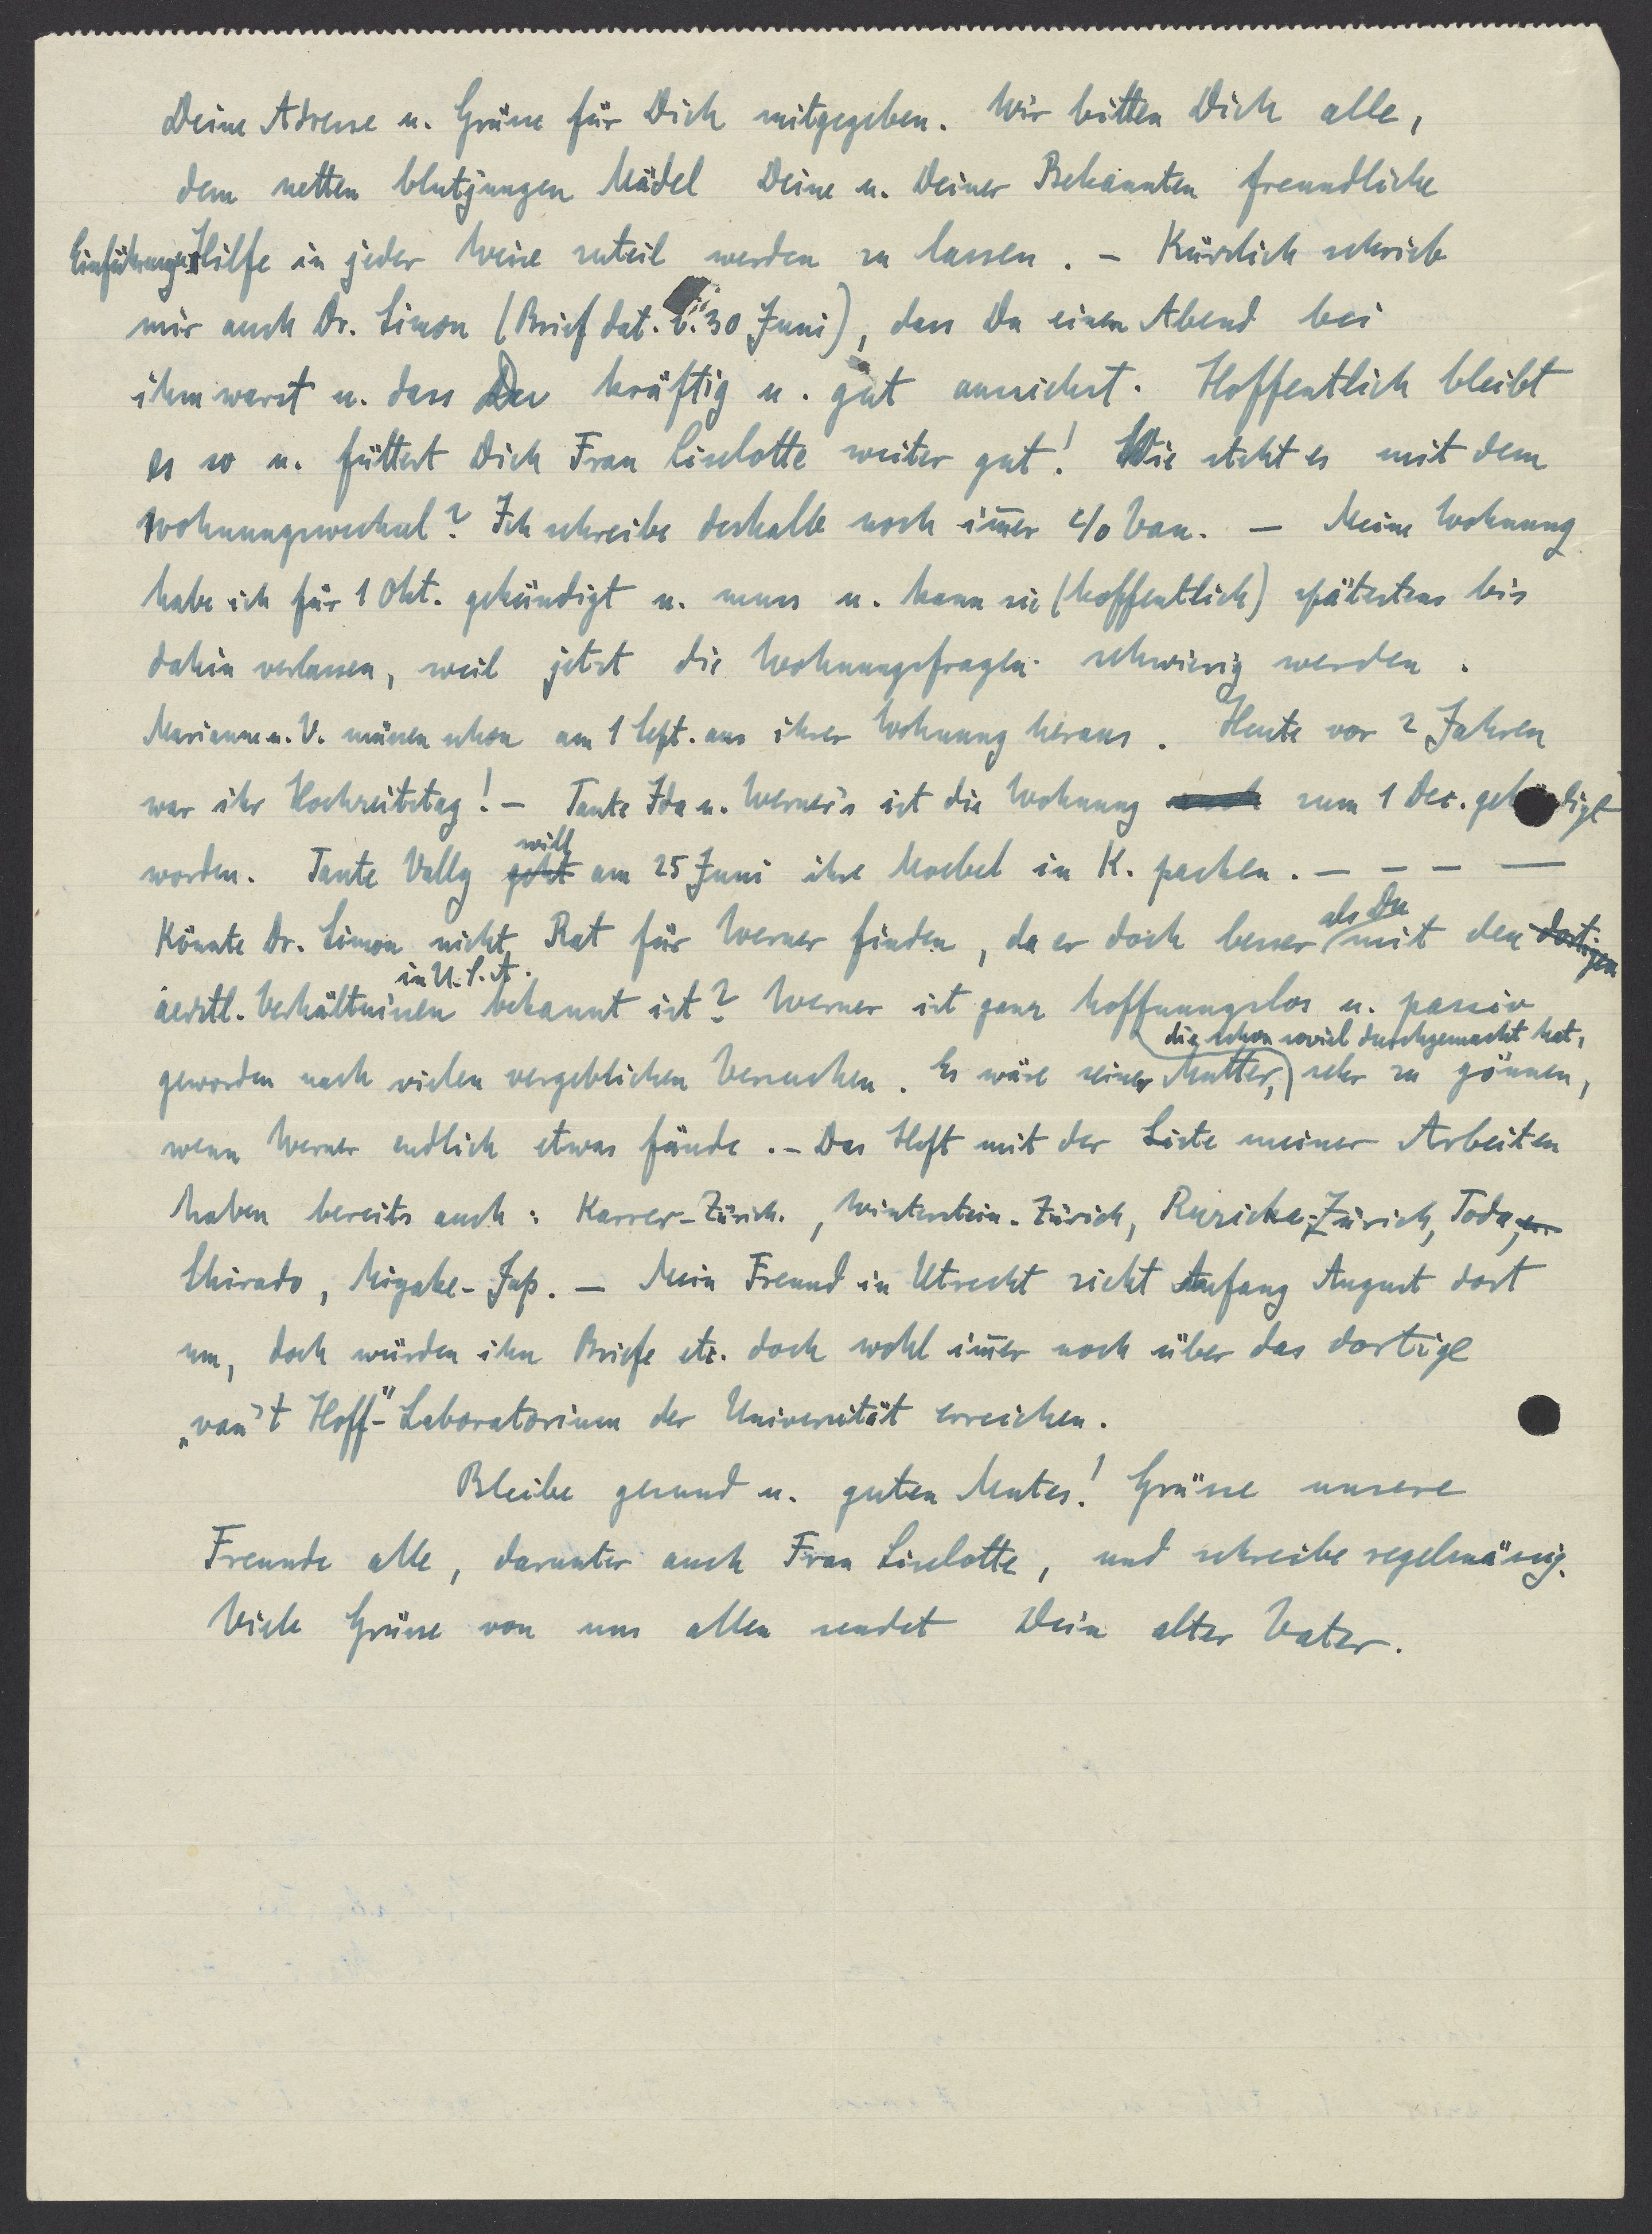 Deine Adresse u. Grüsse für Dich mitgegeben. Wir bitten Dich alle,
dem netten blutjungen Mädel Deine u. Deiner Bekannten freundliche
Einführungs Hilfe in jeder Weise zuteil werden zu lassen. – Kürzlich schrieb
mir auch Dr. Simon (Brief dat. v. 30 Juni), dass Du einen Abend bei
ihm warst u. dass Du kräftig u. gut aussiehst. Hoffentlich bleibt
es so u. füttert Dich Frau Liselotte weiter gut! Wie steht es mit dem
Wohnungswechsel? Ich schreibe deshalb noch im̅er c/o Van. – Meine Wohnung
habe ich für 1 Okt. gekündigt u. muss u. kann sie (hoffentlich) spätestens bis
dahin verlassen, weil jetzt die Wohnungsfragen schwierig werden.
Marianne u. V. müssen schon am 1 Sept. aus ihrer Wohnung heraus. Heute vor 2 Jahren
war ihr Hochzeitstag! – Tante Ida u. Werner's ist die Wohnung zum 1 Dec. gekündigt
will
worden. Tante Vally geht am 25 Juni ihre Moebel in K. packen. – – – –
als Du
Könnte Dr. Simon nicht Rat für Werner finden, da er doch besser mit den dortigen
in U.S.A.
aerztl. Verhältnissen bekannt ist? Werner ist ganz hoffnungslos u. passiv
die schon soviel durchgemacht hat,
geworden nach vielen vergeblichen Versuchen. Es wäre seiner Mutter, sehr zu gönnen,
wenn Werner endlich etwas fände. – Das Heft mit der Liste meiner Arbeiten
haben bereits auch: Karrer-Zürich., Winterstein-Zürich, Ruzicka-Zürich, Toda,
Shirado, Miyake-Jap. – Mein Freund in Utrecht zieht Anfang August dort
um, doch würden ihn Briefe etc. doch wohl im̅er noch über das dortige
„van't Hoff"-Laboratorium der Universität erreichen.
Bleibe gesund u. guten Mutes! Grüsse unsere
Freunde alle, darunter auch Frau Liselotte, und schreibe regelmässig.
Viele Grüsse von uns allen sendet Dein alter Vater.